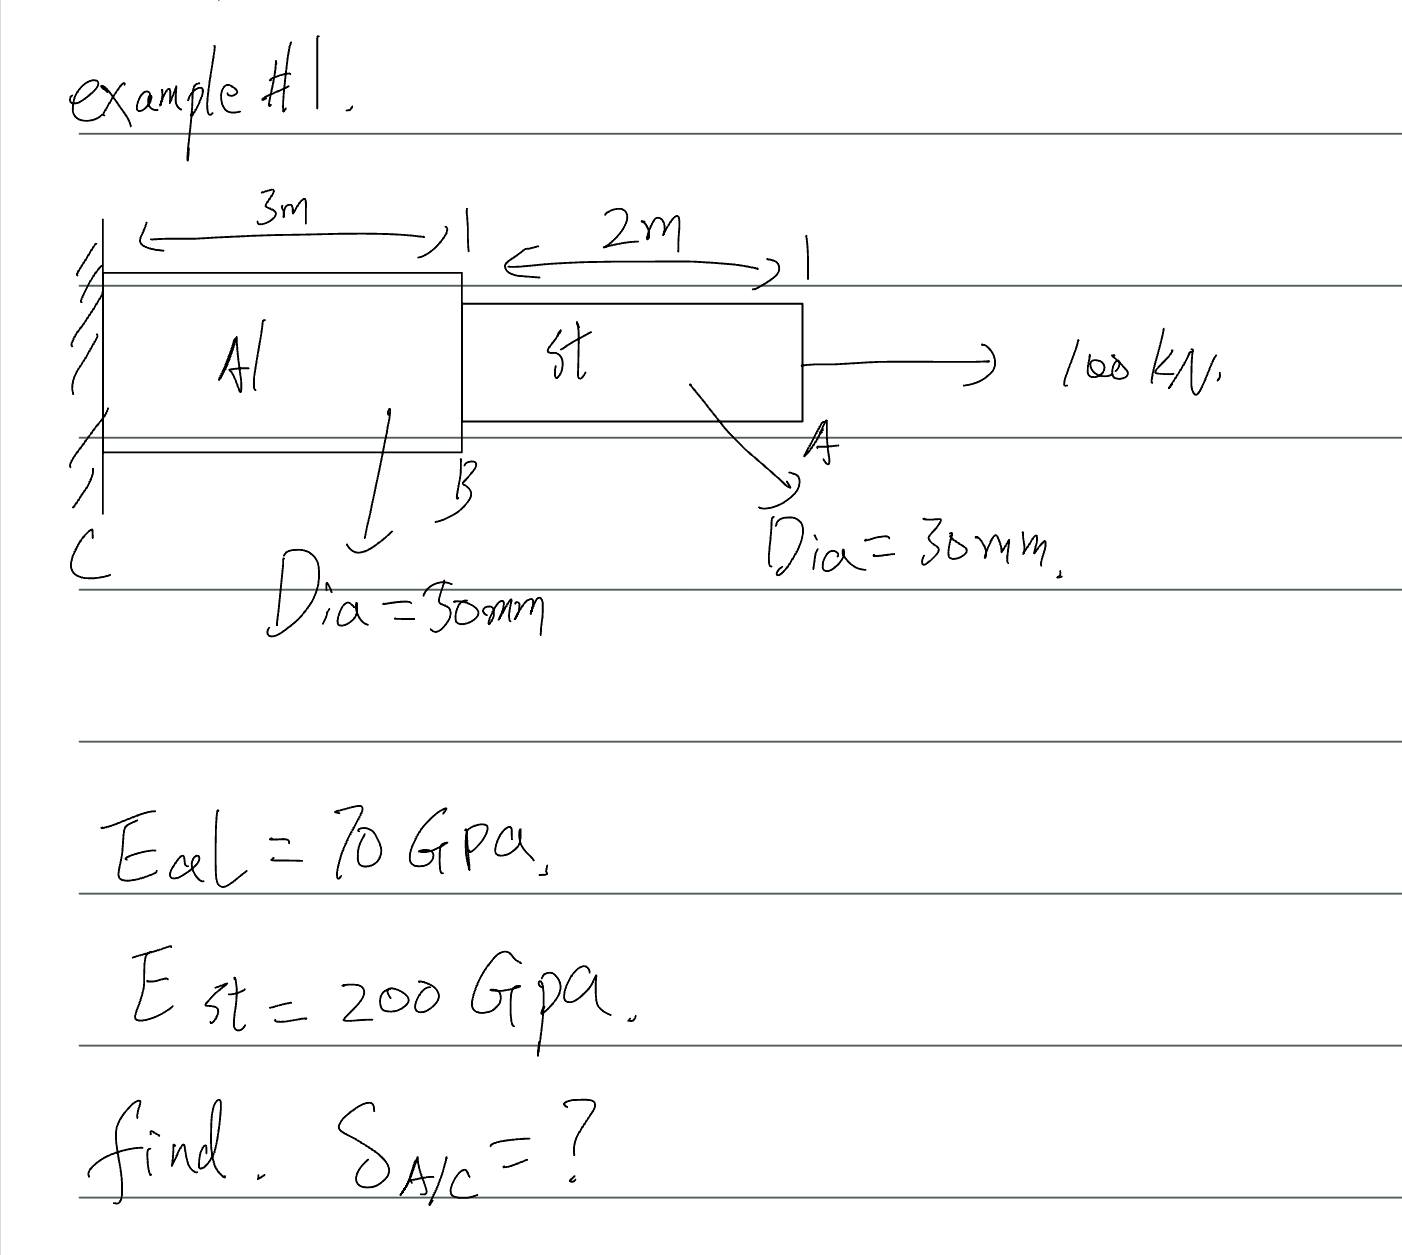 example #1.
3m
2m
Al
st
100 kN.
A
B
C
Dia = 30mm.
Dia = 30mm
Eal = 70 Gpa.
Est = 200 Gpa.
find. δA/C = ?